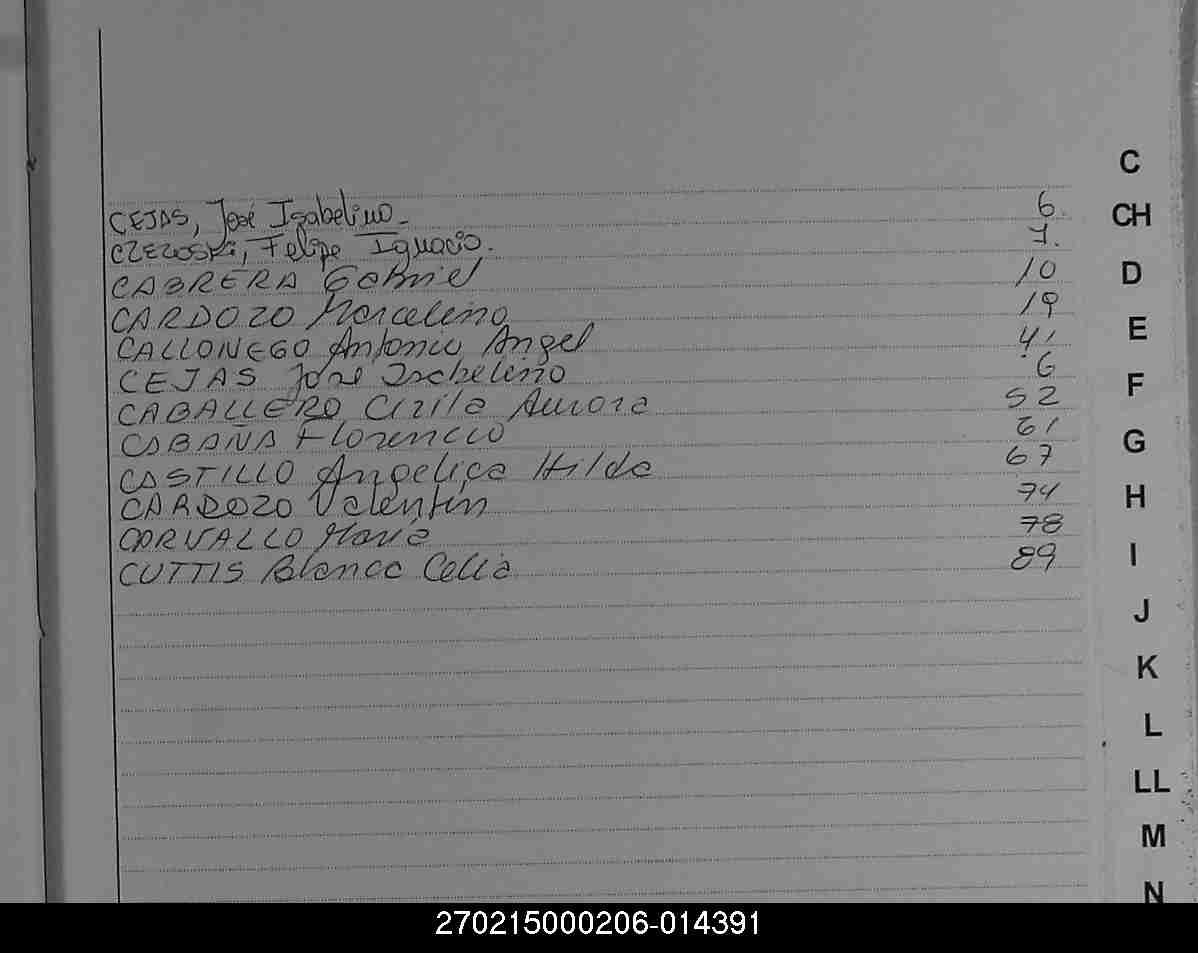 C
CEJAS, José Isabelino. 6.
CH
CZEZOSKI, Felipe Ignacio. 7.
CABRERA Gabriel 10
D
CARDOZO Marcelino 19
CALLONEGO Antonio Angel 41
E
CEJAS José Isabelino 6
CABALLERO Cirila Aurora 52
F
CABAÑA Florencio 61
G
CASTILLO Angelica Hilda 67
CARDOZO Valentín 74
H
CARVALLO María 78
CUTTIS Blanca Celia 89
I
J
K
L
LL
M
N
270215000206-014391